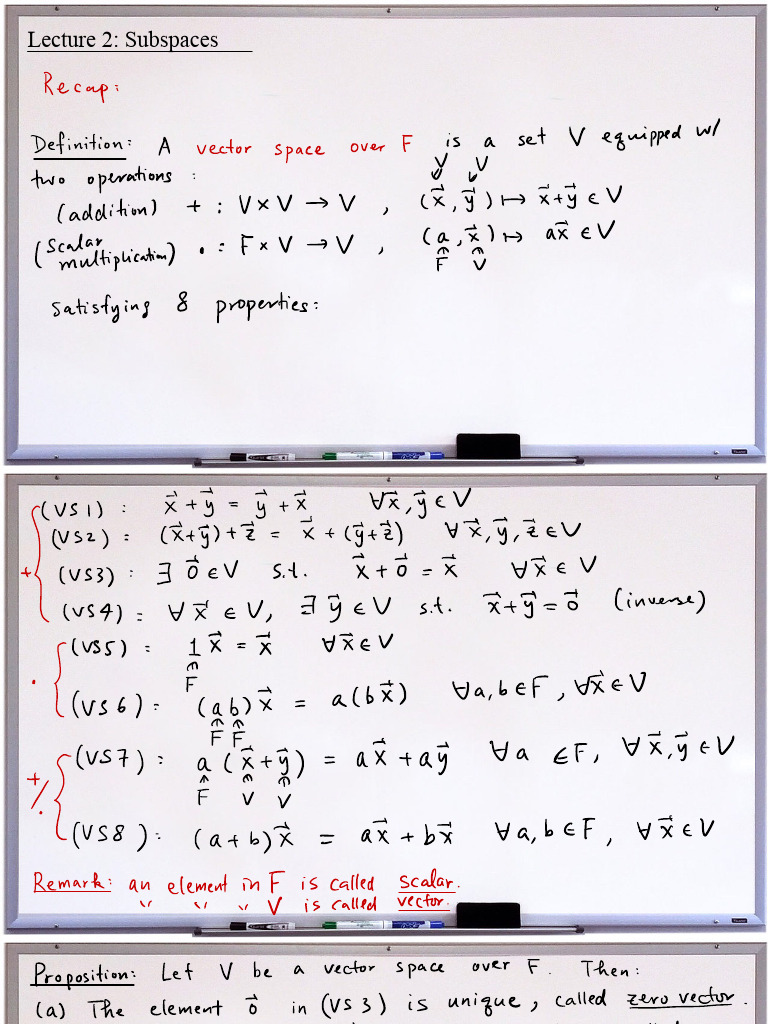 Lecture 2: Subspaces
Recap:
Definition: A vector space over F is a set V equipped w/
two operations:
(addition) + : V × V → V , (x⃗, y⃗) ↦ x⃗+y⃗ ∈ V
V V
(scalar multiplication) · : F × V → V , (a, x⃗) ↦ ax⃗ ∈ V
F V
satisfying 8 properties:
(VS1) : x⃗ + y⃗ = y⃗ + x⃗ ∀x⃗, y⃗ ∈ V
(VS2) : (x⃗+y⃗)+z⃗ = x⃗ + (y⃗+z⃗) ∀x⃗, y⃗, z⃗ ∈ V
+ (VS3) : ∃ 0⃗ ∈ V s.t. x⃗ + 0⃗ = x⃗ ∀x⃗ ∈ V
(VS4) : ∀x⃗ ∈ V, ∃ y⃗ ∈ V s.t. x⃗+y⃗ = 0⃗ (inverse)
(VS5) : 1x⃗ = x⃗ ∀x⃗ ∈ V
F
· (VS6) : (ab)x⃗ = a(bx⃗) ∀a, b ∈ F, ∀x⃗ ∈ V
F F
(VS7) : a(x⃗+y⃗) = ax⃗ + ay⃗ ∀a ∈ F, ∀x⃗, y⃗ ∈ V
+/· F V V
(VS8) : (a+b)x⃗ = ax⃗ + bx⃗ ∀a, b ∈ F, ∀x⃗ ∈ V
Remark: an element in F is called scalar.
" " " V is called vector.
Proposition: Let V be a vector space over F. Then:
(a) The element 0⃗ in (VS3) is unique, called zero vector.